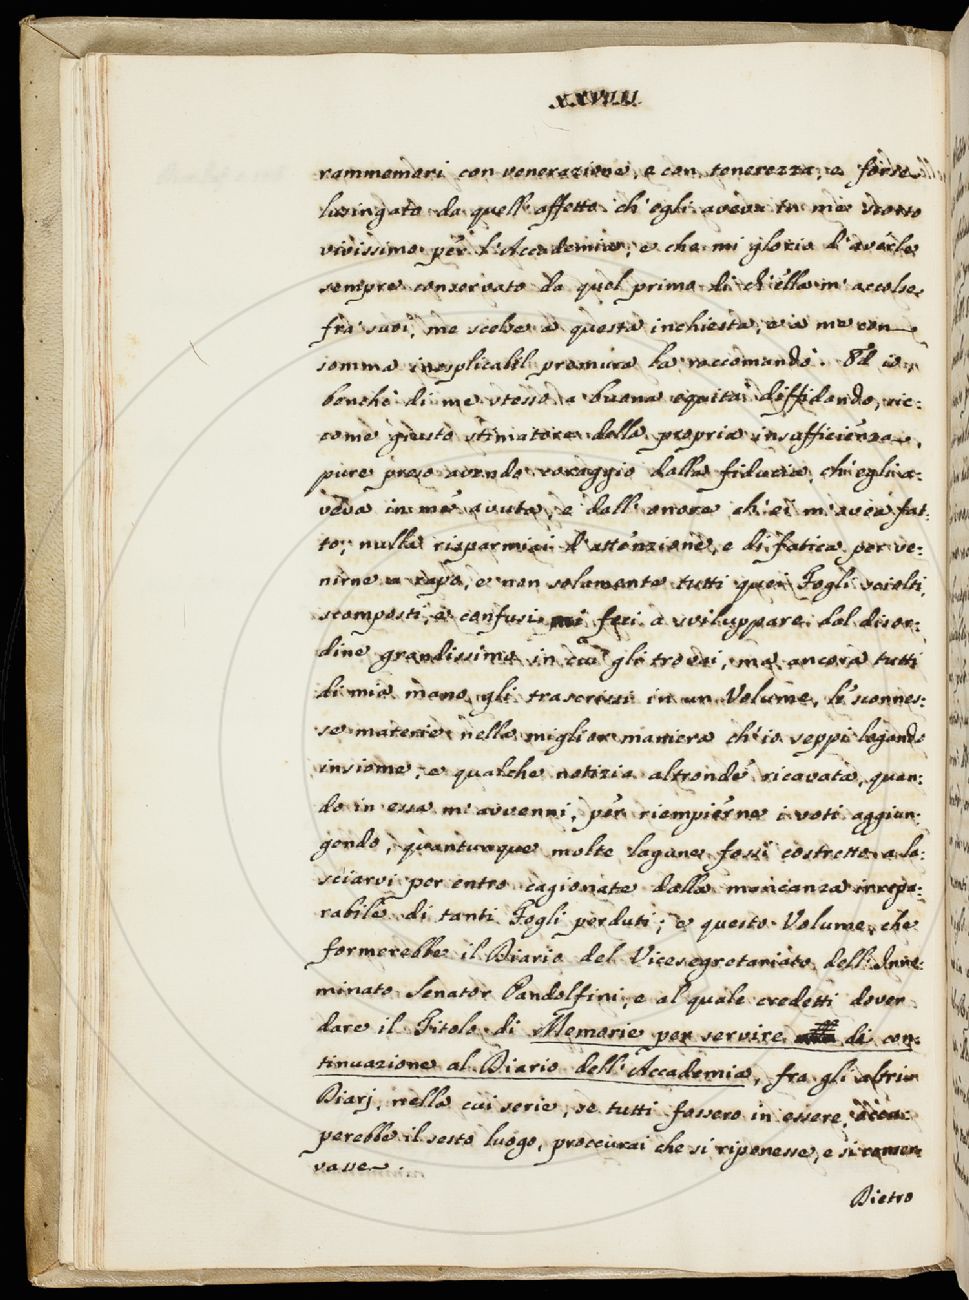 XXVIIII.
rammemori con venerazione, e con tenerezza, e forse
lusingato da quell'affetto ch'egli aveva in me visto
vivissimo per l'Accademia, e che mi glorio d'averle
sempre conservato da quel primo dì ch'ella m'accolse
fra' suoi, me scelse a questa inchiesta, e a me con
somma inesplicabil premura la raccomandò. Ed io,
benchè di me stesso a buona equità diffidando, sic:
come giusto stimatore della propria insufficienza,
pure preso avendo coraggio dalla fiducia, ch'egli a:
veva in me avuta, e dall'onore ch'ei m'avea fat:
to; nulla risparmiai d'attenzione, e di fatica per ve:
nirne a capo, e non solamente tutti quei Fogli sciolti,
scomposti, e confusi mi feci a sviluppare dal disor:
dine grandissimo in cui gli trovai, ma ancora tutti
di mia mano gli trascrissi in un Volume, le sconnes:
se materie nella miglior maniera ch'io seppi legando
insieme, e qualche notizia altronde ricavata, quan:
do in essa m'avvenni, per riempierne i voti aggiun:
gendo, quantunque molte lagune fossi costretto a la:
sciarvi per entro cagionate dalla mancanza irrepa:
rabile di tanti Fogli perduti; e questo Volume, che
formerebbe il Diario del Vicesegretariato dell'Inno:
minato Senator Pandolfini, e al quale credetti dover
dare il Titolo di Memorie per servire di con:
tinuazione al Diario dell'Accademia, fra gli altri
Diarj, nella cui serie, se tutti fossero in essere, occu:
perebbe il sesto luogo, proccurai che si riponesse, e si conser:
vasse.
Pietro